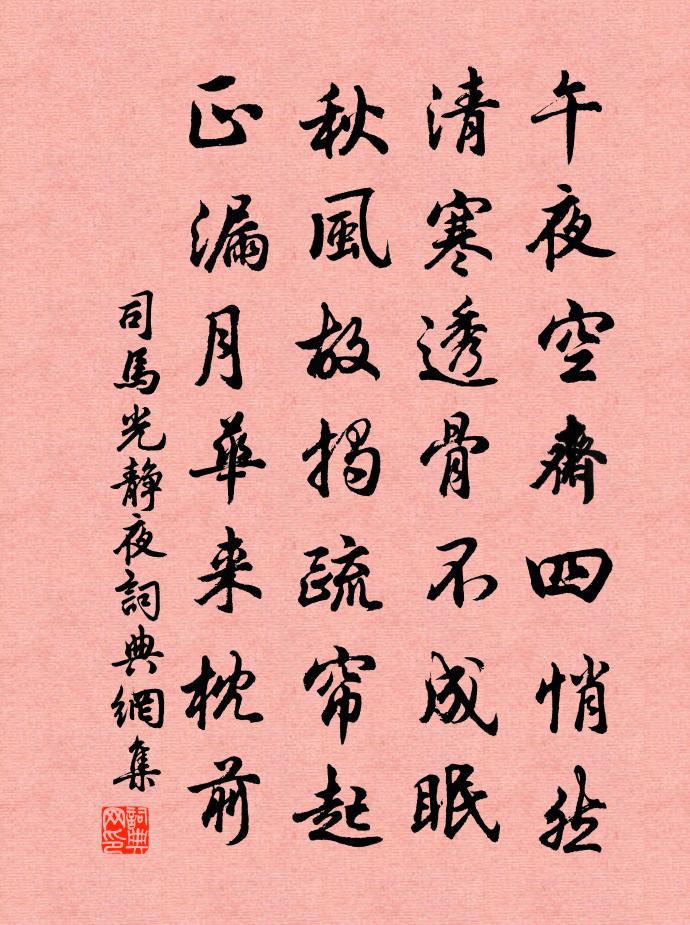 午夜空齋四悄然
清寒透骨不成眠
秋風故揭疏帘起
正漏月華来枕前
司馬光静夜詞典網集
詞典网印